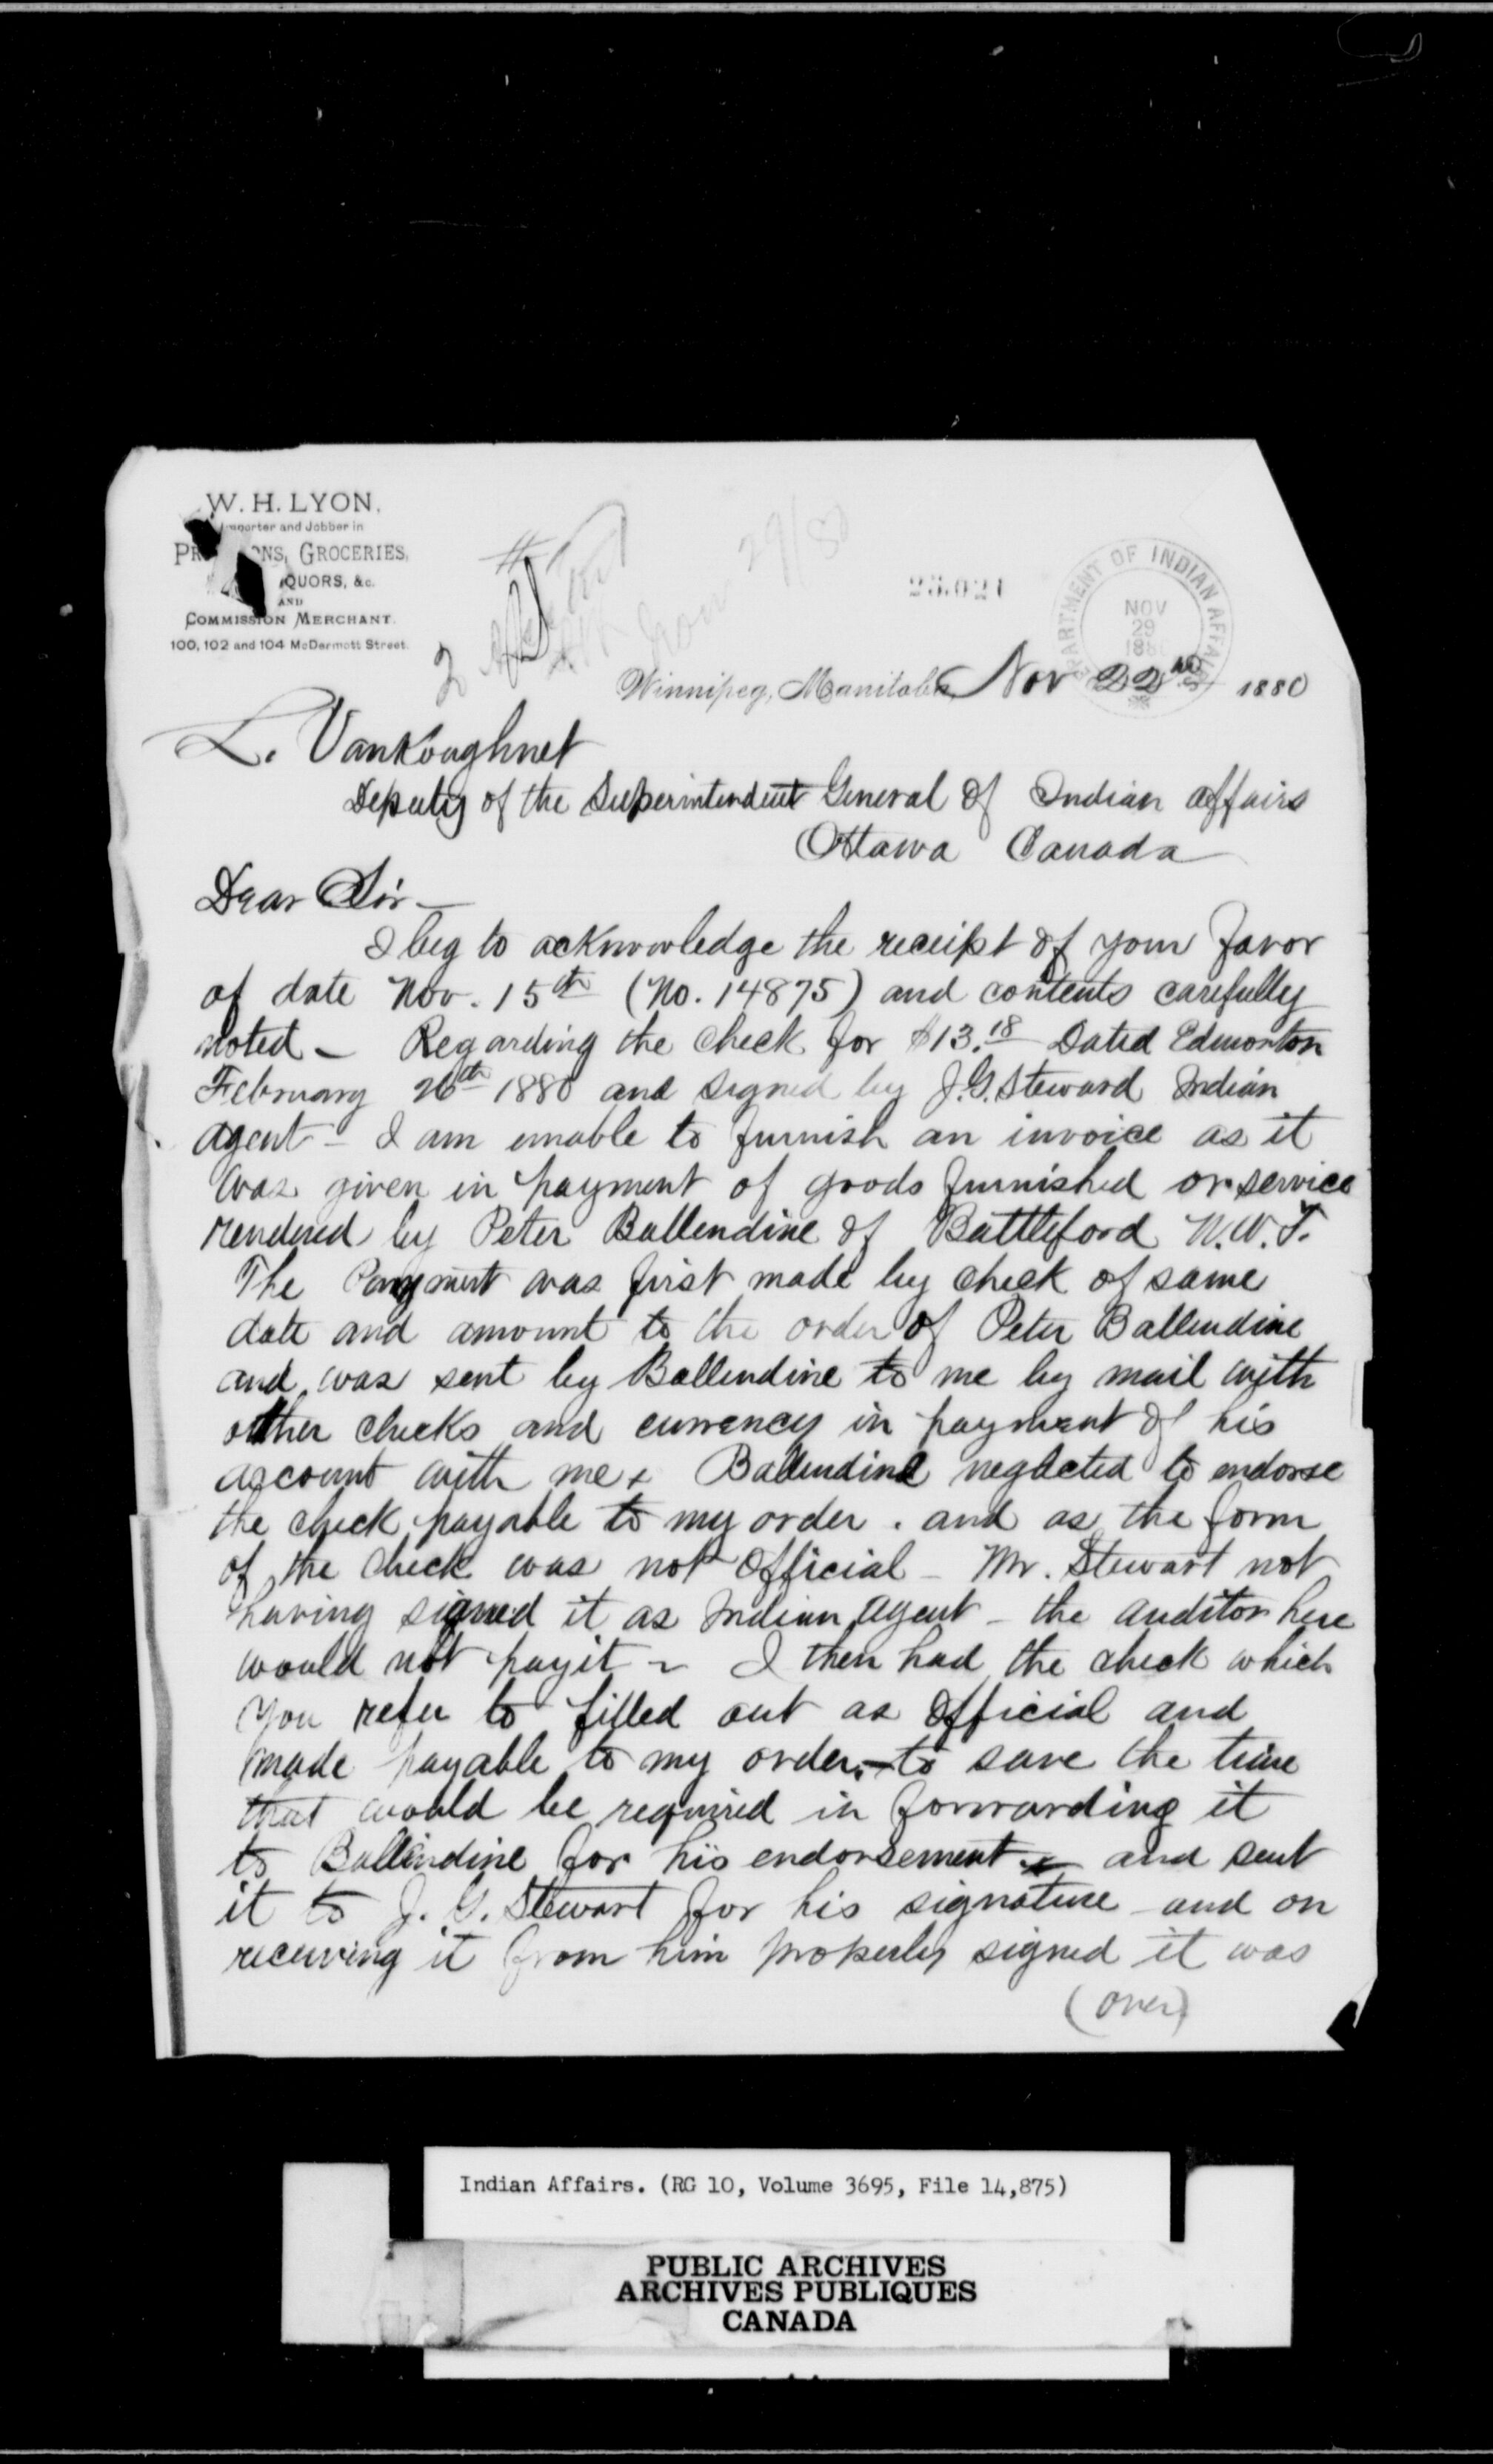 W. H. LYON,
Importer and Jobber in
PROVISIONS, GROCERIES,
LIQUORS, &c.
AND
COMMISSION MERCHANT.
100, 102 and 104 McDermott Street.
23.021
DEPARTMENT OF INDIAN AFFAIRS
NOV
29
1880
Winnipeg, Manitoba, Nov 22nd 1880
L. VanKoughnet
Deputy of the Superintendent General of Indian affairs
Ottawa Canada
Dear Sir —
I beg to acknowledge the receipt of your favor
of date Nov. 15th (No. 14875) and contents carefully
noted — Regarding the check for $13.18 Dated Edmonton
February 26th 1880 and signed by J.G. Steward Indian
agent — I am unable to furnish an invoice as it
was given in payment of goods furnished or service
rendered by Peter Ballendine of Battleford N.W.T.
The Payment was first made by check of same
date and amount to the order of Peter Ballendine
and was sent by Ballendine to me by mail with
other checks and currency in payment of his
account with me. Ballendine neglected to endorse
the check payable to my order. and as the form
of the check was not official — Mr. Stewart not
having signed it as Indian agent — the auditor here
would not pay it — I then had the check which
you refer to filled out as official and
made payable to my order, — to save the time
that would be required in forwarding it
to Ballendine for his endorsement — and sent
it to J. G. Stewart for his signature — and on
receiving it from him properly signed it was
(over)
Indian Affairs. (RG 10, Volume 3695, File 14,875)
PUBLIC ARCHIVES
ARCHIVES PUBLIQUES
CANADA